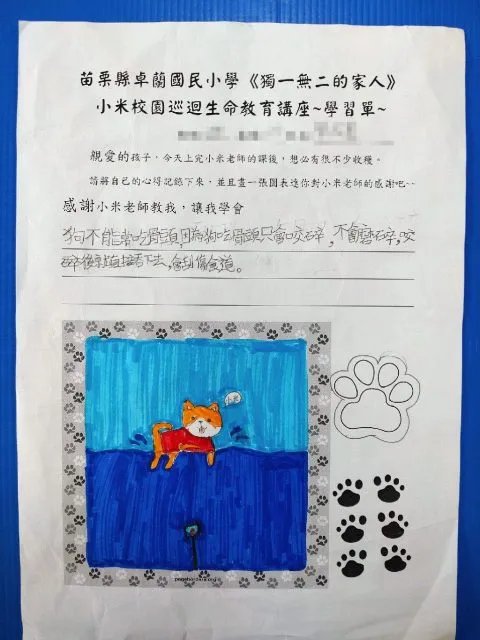 苗栗縣卓蘭國民小學《獨一無二的家人》
小米校園巡迴生命教育講座~學習單~
親愛的孩子，今天上完小米老師的課後，想必有很不少收穫。
請將自己的心得記錄下來，並且畫一張圖表達你對小米老師的感謝吧~~
感謝小米老師教我，讓我學會
狗不能常吃骨頭，因為狗吃骨頭只會咬碎，不會磨碎，咬
碎後就直接吞下去，會刮傷食道。
pageborders.org